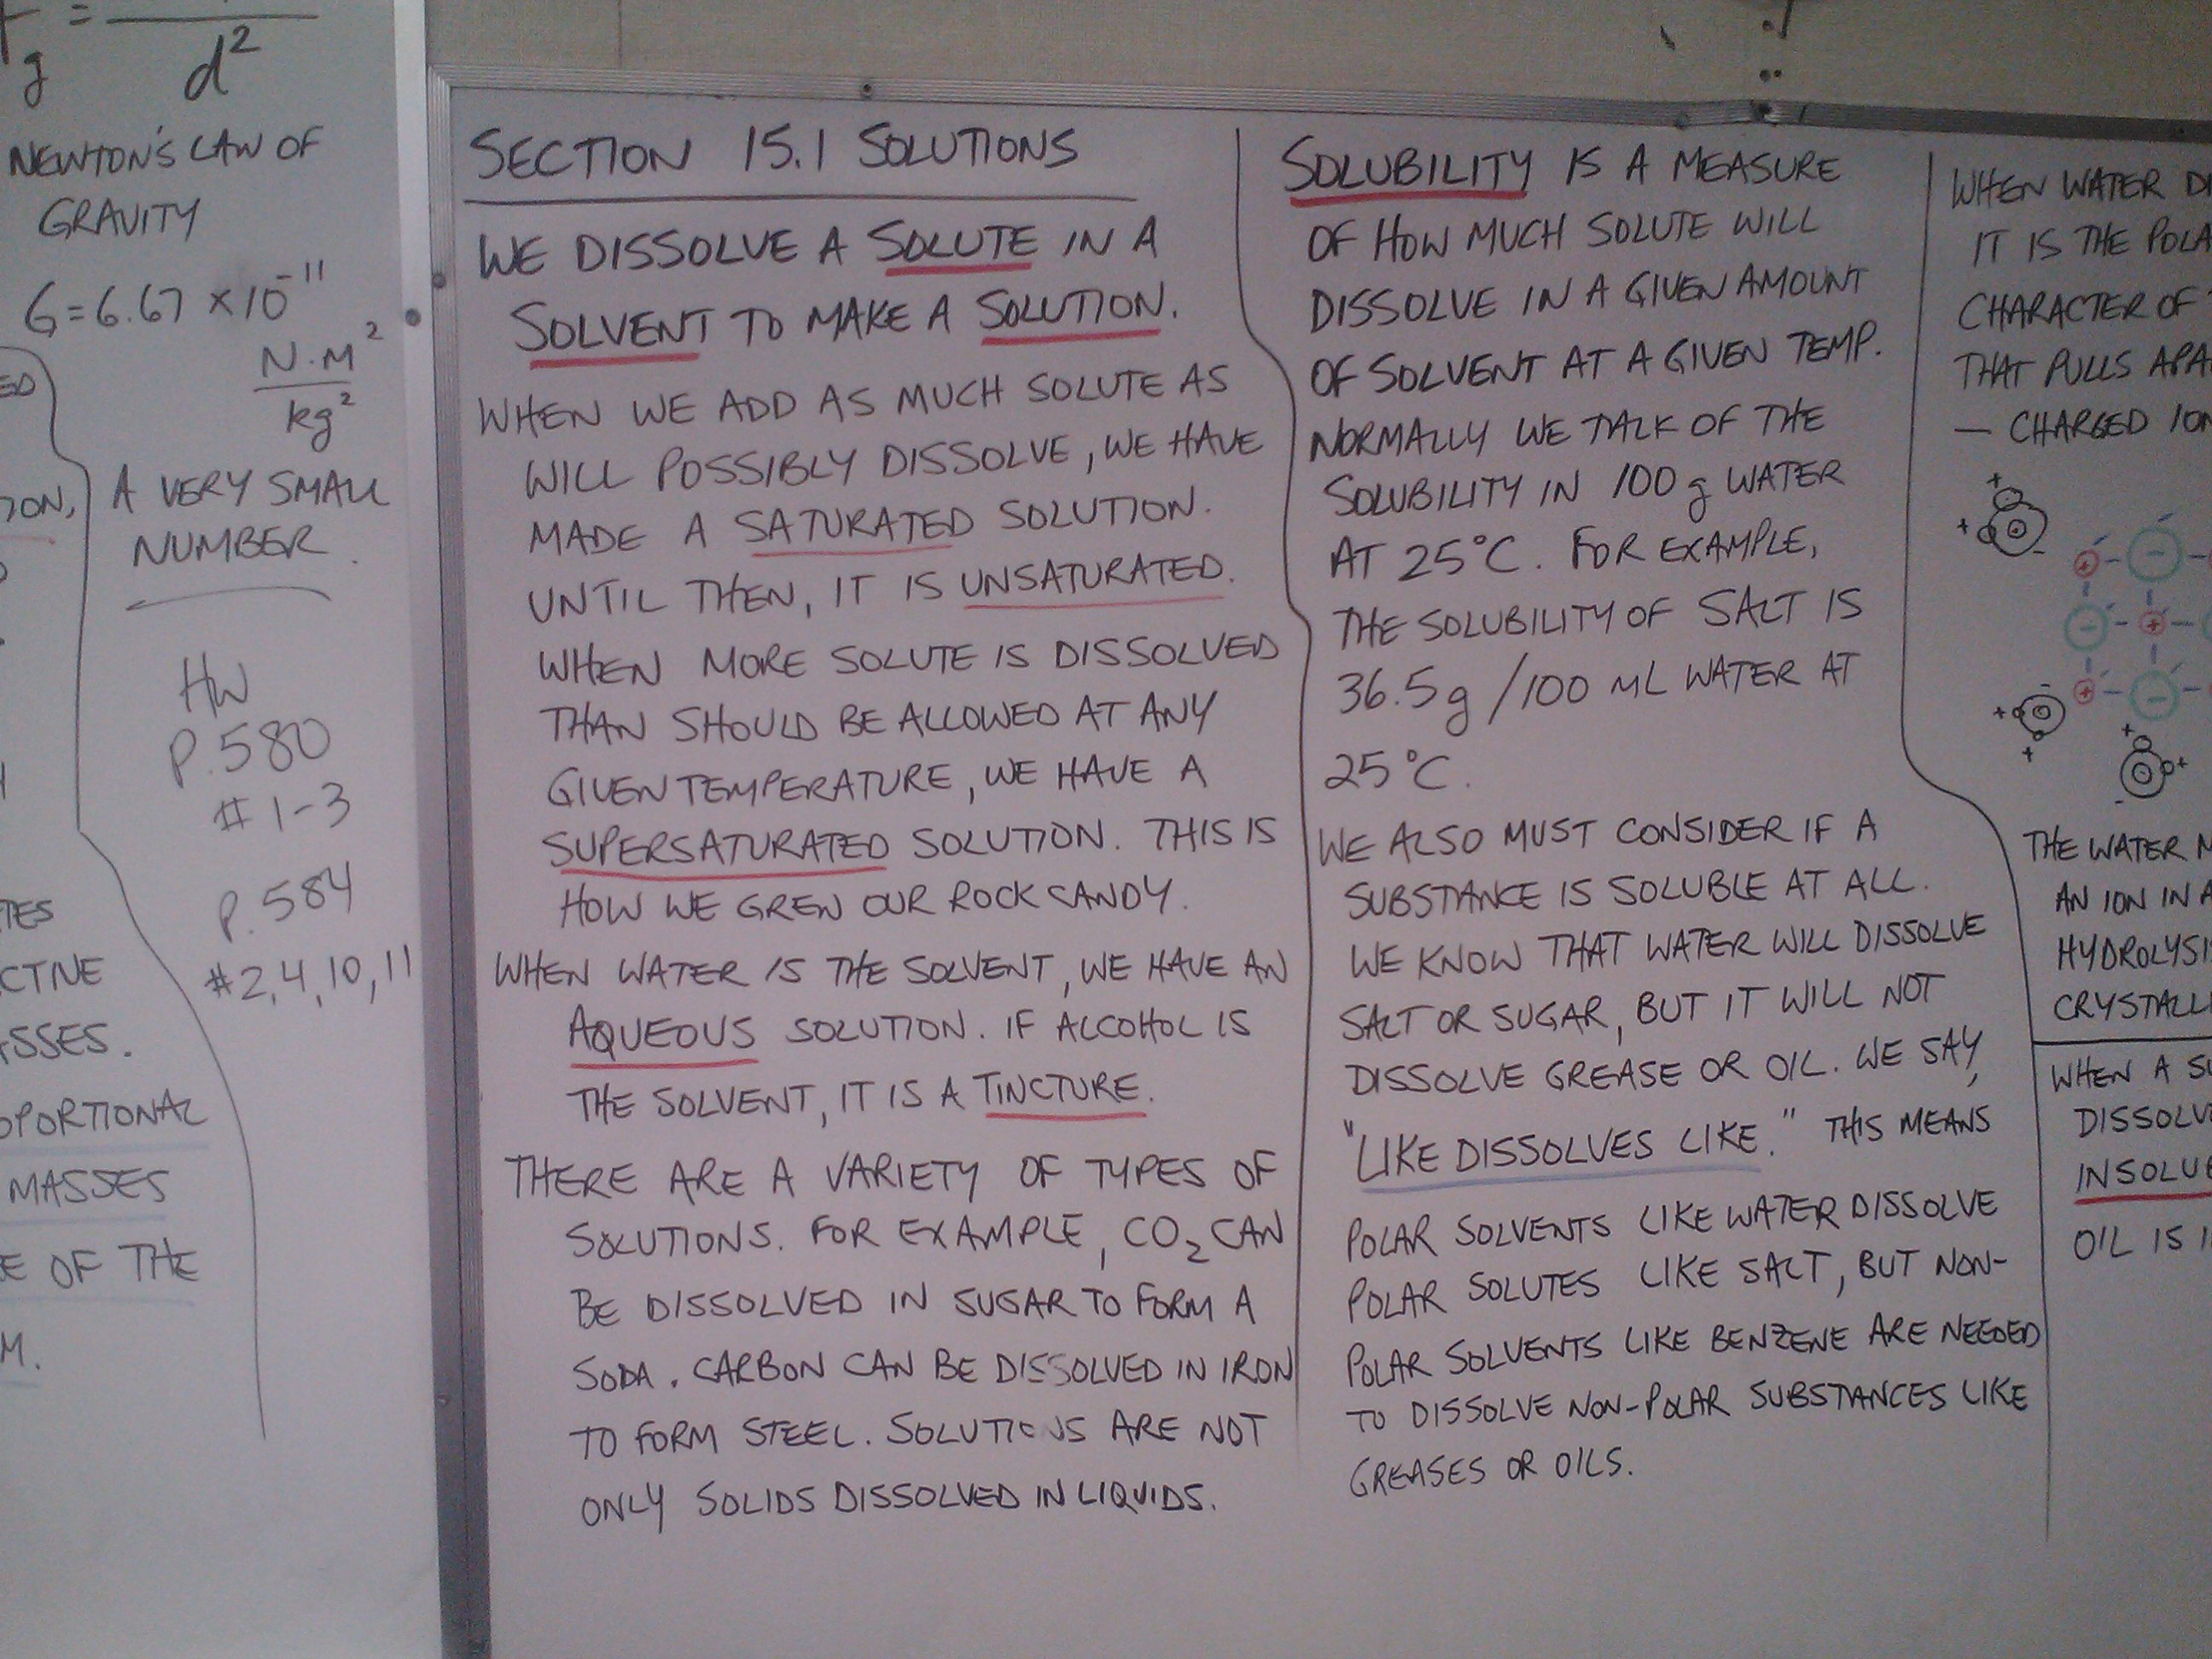 g =
d²
NEWTON'S LAW OF
GRAVITY
G = 6.67 × 10⁻¹¹
N·M²
kg²
A VERY SMALL
NUMBER
HW
P. 580
# 1-3
P. 584
#2, 4, 10, 11
OPORTIONAL
MASSES
OF THE
M.
SECTION 15.1 SOLUTIONS
WE DISSOLVE A SOLUTE IN A
SOLVENT TO MAKE A SOLUTION.
WHEN WE ADD AS MUCH SOLUTE AS
WILL POSSIBLY DISSOLVE, WE HAVE
MADE A SATURATED SOLUTION.
UNTIL THEN, IT IS UNSATURATED.
WHEN MORE SOLUTE IS DISSOLVED
THAN SHOULD BE ALLOWED AT ANY
GIVEN TEMPERATURE, WE HAVE A
SUPERSATURATED SOLUTION. THIS IS
HOW WE GREW OUR ROCK CANDY.
WHEN WATER IS THE SOLVENT, WE HAVE AN
AQUEOUS SOLUTION. IF ALCOHOL IS
THE SOLVENT, IT IS A TINCTURE.
THERE ARE A VARIETY OF TYPES OF
SOLUTIONS. FOR EXAMPLE, CO₂ CAN
BE DISSOLVED IN SUGAR TO FORM A
SODA. CARBON CAN BE DISSOLVED IN IRON
TO FORM STEEL. SOLUTIONS ARE NOT
ONLY SOLIDS DISSOLVED IN LIQUIDS.
SOLUBILITY IS A MEASURE
OF HOW MUCH SOLUTE WILL
DISSOLVE IN A GIVEN AMOUNT
OF SOLVENT AT A GIVEN TEMP.
NORMALLY WE TALK OF THE
SOLUBILITY IN 100 g WATER
AT 25°C. FOR EXAMPLE,
THE SOLUBILITY OF SALT IS
36.5g /100 ML WATER AT
25°C.
WE ALSO MUST CONSIDER IF A
SUBSTANCE IS SOLUBLE AT ALL.
WE KNOW THAT WATER WILL DISSOLVE
SALT OR SUGAR, BUT IT WILL NOT
DISSOLVE GREASE OR OIL. WE SAY,
"LIKE DISSOLVES LIKE." THIS MEANS
POLAR SOLVENTS LIKE WATER DISSOLVE
POLAR SOLUTES LIKE SALT, BUT NON-
POLAR SOLVENTS LIKE BENZENE ARE NEEDED
TO DISSOLVE NON-POLAR SUBSTANCES LIKE
GREASES OR OILS.
WHEN WATER
IT IS THE
CHARACTER OF
THAT PULLS
— CHARGED
THE WATER
AN ION IN
WHEN A
OIL IS